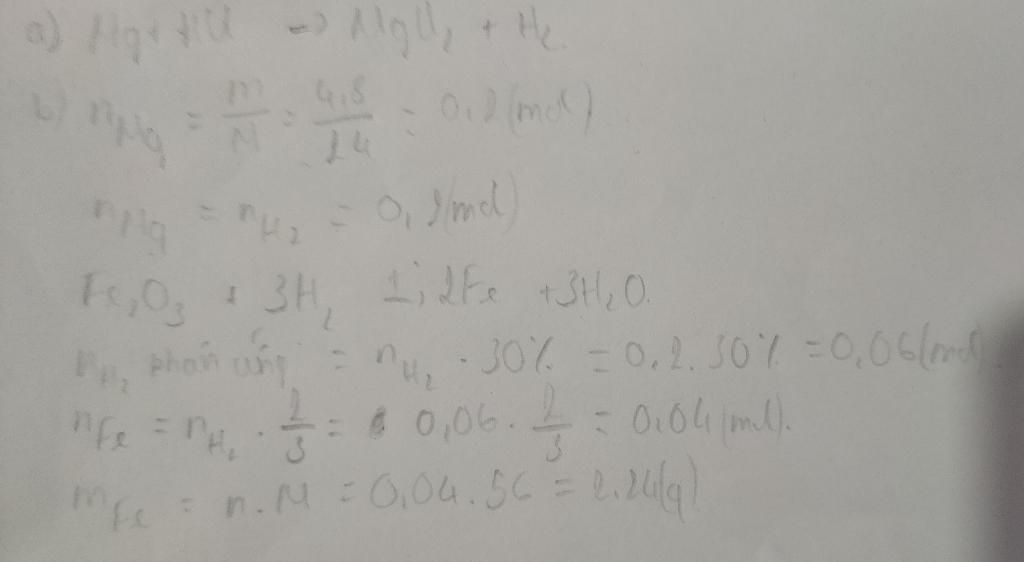 a) Mg + HCl -> MgCl₂ + H₂.
b) nMg = m/M = 4,8/24 = 0,2 (mol)
nMg = nH₂ = 0,2 (mol)
Fe₂O₃ + 3H₂ 2Fe + 3H₂O.
nH₂ phản ứng = nH₂ . 30% = 0,2.30% = 0,06 (mol).
nFe = nH₂ . 2/3 = 0,06 . 2/3 = 0,04 (mol).
mFe = n.M = 0,04.56 = 2,24(g)